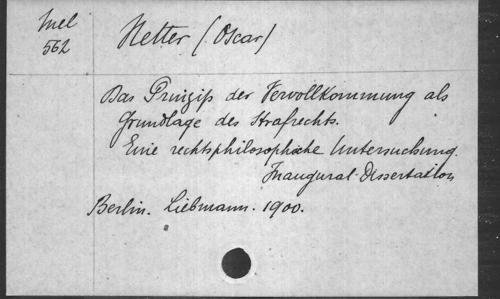 Mel
562
Netter (Oscar)
Das Prinzip der Vervollkommnung als
Grundlage des Strafrechts.
Eine rechtsphilosophische Untersuchung.
Inaugural-Dissertation
Berlin. Liebmann. 1900.